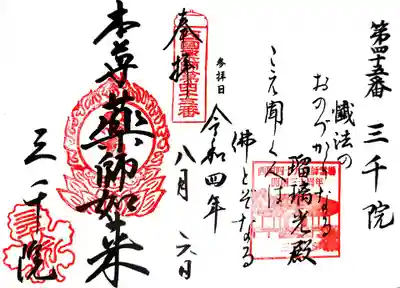 第四十五番 三千院
懴法の
おのづからなる
瑠璃光殿
こえ聞くへは
佛とぞなる
参拝日
令和四年
八月六日
奉拝
本尊薬師如来
三千院